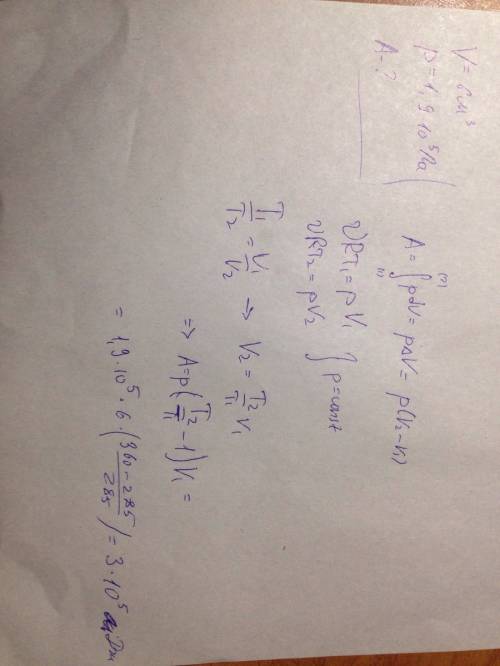 V = 6 м³
p = 1,9·10⁵ Па
A - ?
A = ∫₍₁₎⁽²⁾ pdV = pΔV = p(V₂ - V₁)
νRT₁ = pV₁
νRT₂ = pV₂ } p = const
T₁/T₂ = V₁/V₂ → V₂ = T₂/T₁ V₁
=> A = p(T₂/T₁ - 1)V₁ =
= 1,9·10⁵·6·(360-285/285) = 3·10⁵ Дж